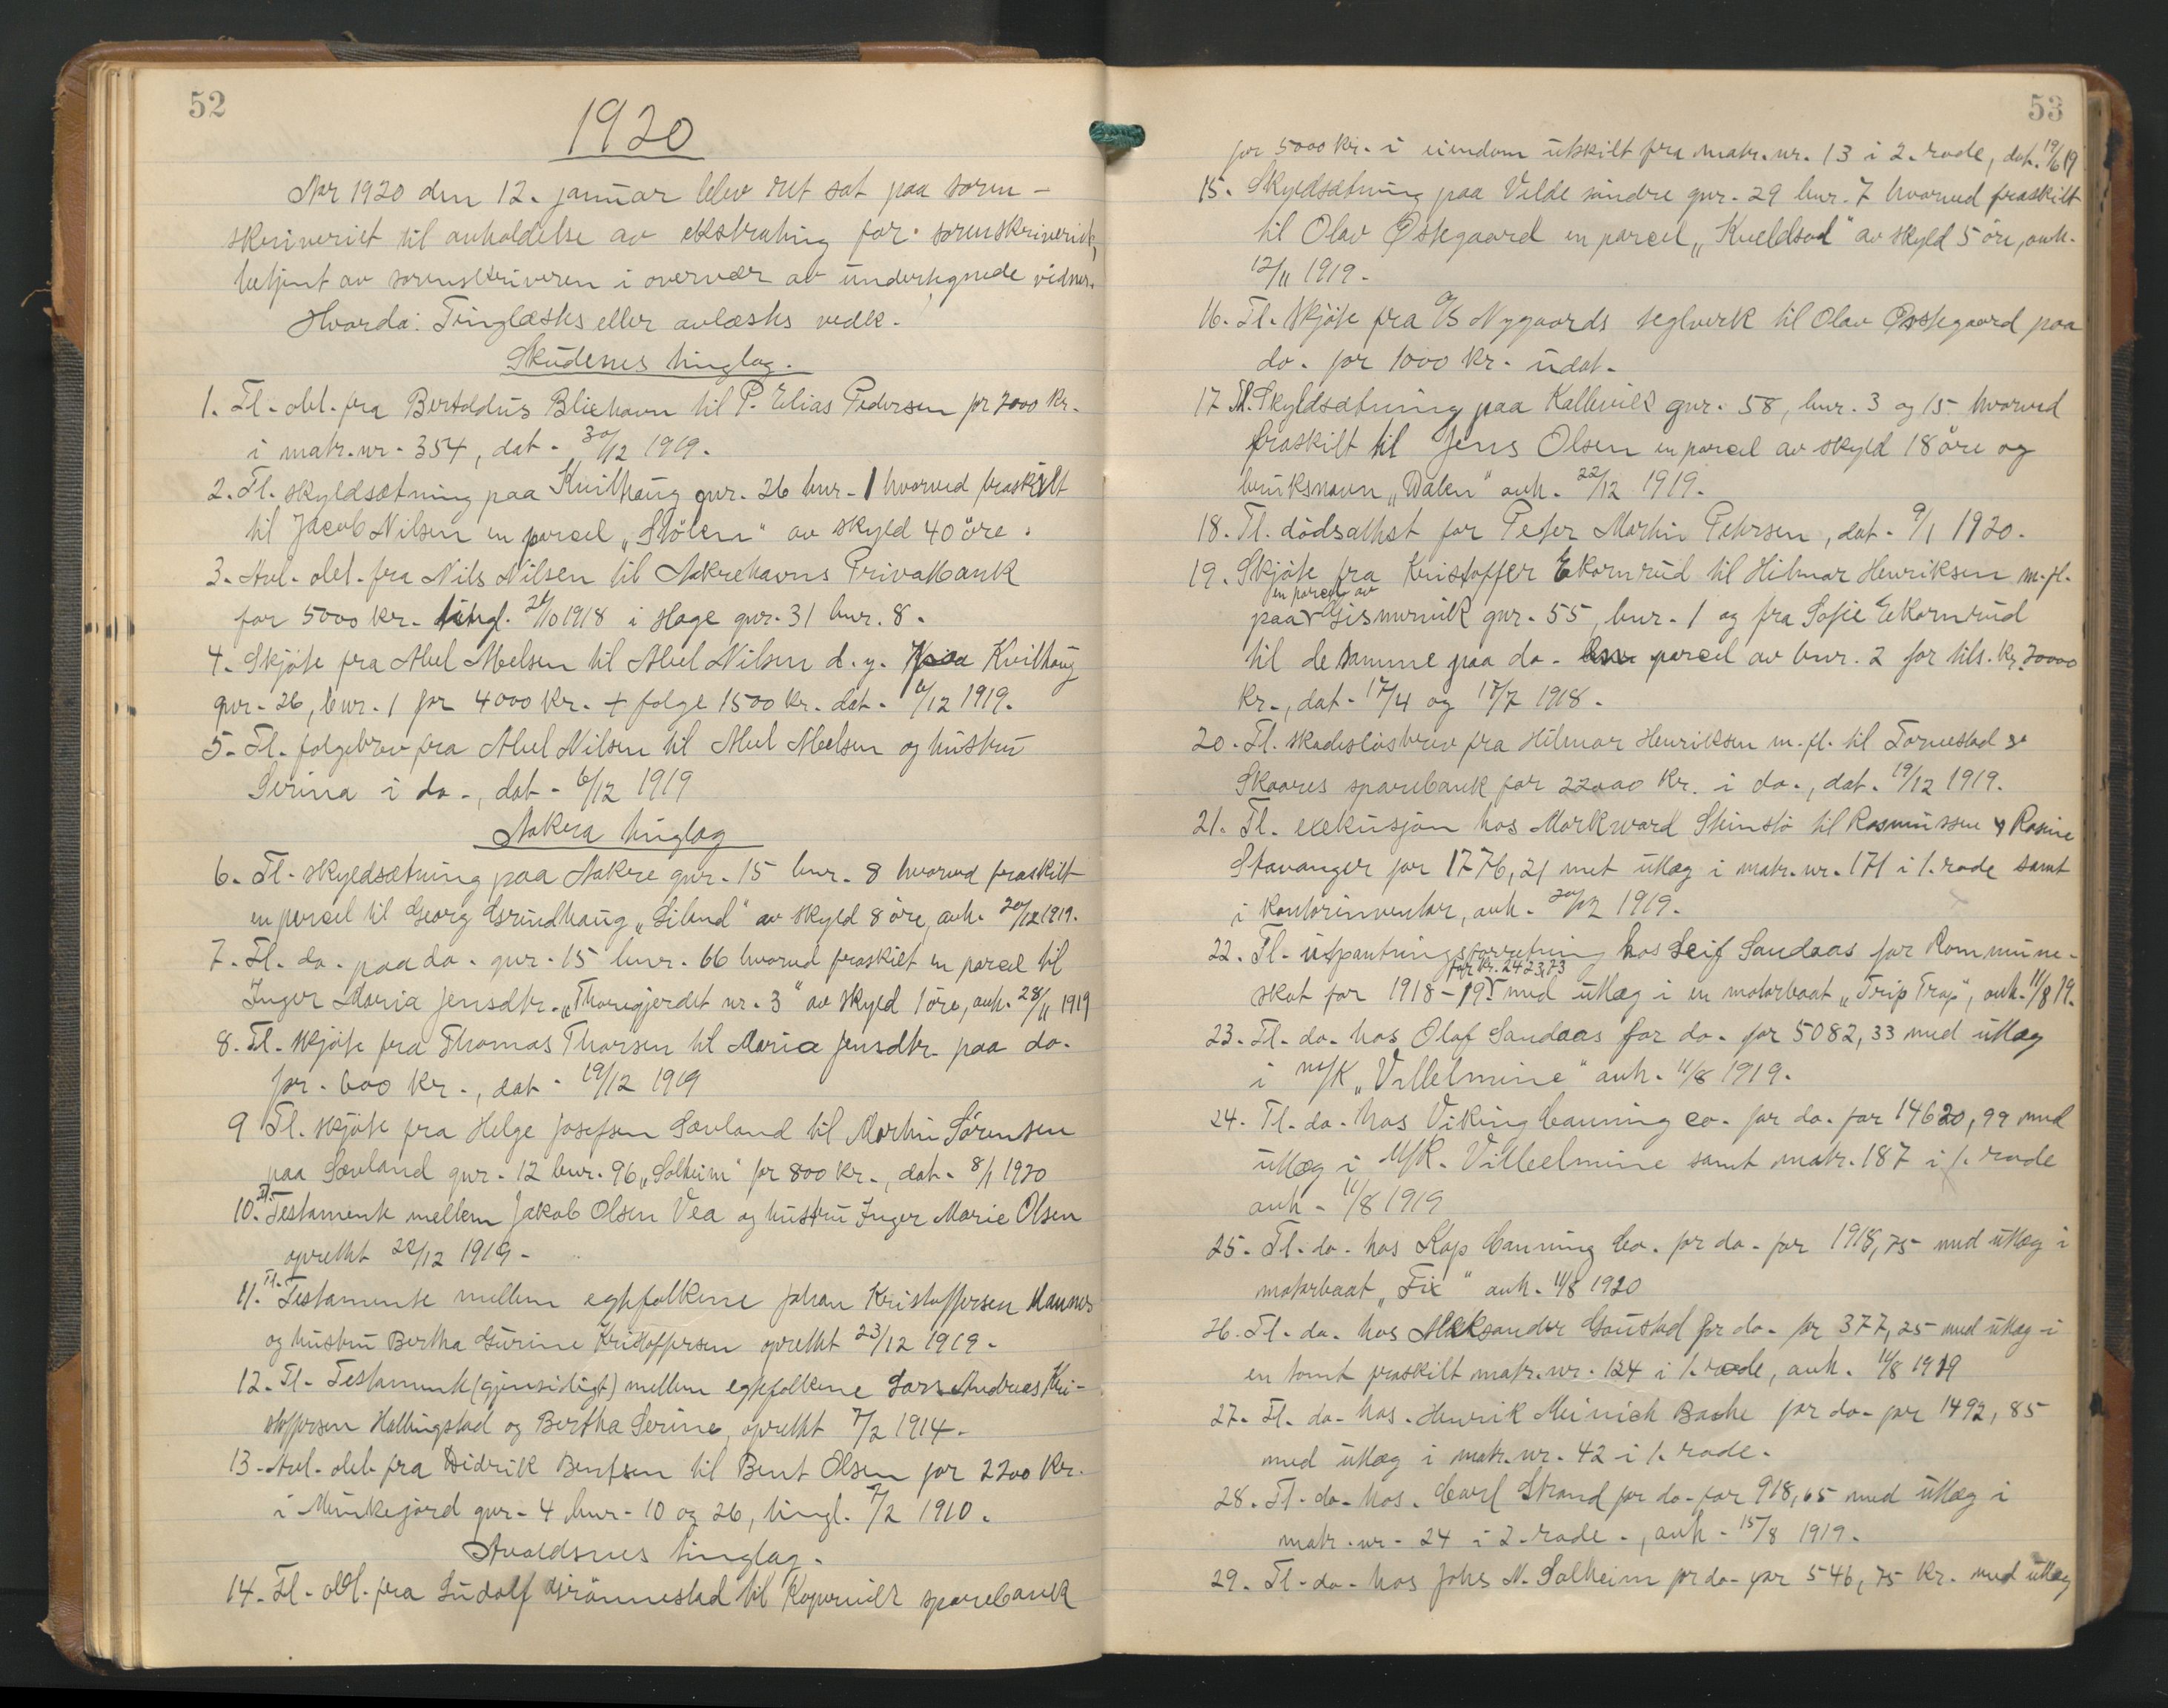 52
1920
Aar 1920 den 12. januar blev ret sat paa soren-
skriveriet til anholdelse av ekstrating for sorenskriveriet,
betjent av sorenskriveren i overvær av undertegnede vidner.
Hvorda: Tinglæstes eller avlæstes vedk.
Skudenes tinglag.
1. Tl. obl. fra Bertoldus Bliehavn til P. Elias Pedersen for 7000 kr.
i matr.nr. 354, dat. 30/12 1919.
2. Tl. skyldsætning paa Kvilhaug gnr. 26 bnr. 1 hvorved fraskilt
til Jacob Nilsen en parcel „Stölen“ av skyld 40 öre.
3. Avl. obl. fra Nils Nilsen til Aakrehavns Privatbank
for 5000 kr. tingl. 1918 i Hage gnr. 31 bnr. 8.
4. Skjöte fra Abel Abelsen til Abel Nilsen d. y. paa Kvilhaug
gnr. 26, bnr. 1 for 4000 kr. + folge 1500 kr. dat. 6/12 1919.
5. Tl. folgebrev fra Abel Nilsen til Abel Abelsen og hustru
Serina i do., dat. 6/12 1919
Aakra tinglag
6. Tl. skyldsætning paa Aakre gnr. 15 bnr. 8 hvorved fraskilt
en parcel til Georg Grindhaug „Liland“ av skyld 8 öre, avh. 20/12 1919.
7. Tl. do. paa do. gnr. 15 bnr. 66 hvorved fraskilt en parcel til
Inger Maria Jensdtr. „Thoregjerdet nr. 3“ av skyld 1 öre, avh. 28/11 1919
8. Tl. skjöte fra Thomas Thorsen til Maria Jensdtr. paa do.
for. 600 kr., dat. 19/12 1919
9 Tl. skjöte fra Helge Josefsen Sævland til Martin Sörensen
paa Sævland gnr. 12 bnr. 96 „Solheim“ for 800 kr., dat. 8/1 1920
10. Tl. Testamente mellem Jakob Olsen Vea og hustru Inger Marie Olsen
oprettet 22/12 1919.
11. Tl. Testamente mellem egtefolkene Johan Kristoffersen Mannes
og hustru Bertha Gurine Kristoffersen oprettet 23/12 1919.
12. Tl. Testamente (gjensidigt) mellem egtefolkene Lars Andreas Kri-
stoffersen Hallingstad og Bertha Serine, oprettet 7/2 1914.
13. Avl. obl. fra Didrik Bentsen til Bent Olsen for 2200 kr.
i Munkejord gnr. 4 bnr. 10 og 26, tingl. 7/2 1910.
Avaldsnes tinglag.
14. Tl. obl. fra Ludolf Grönnestad til Kopervik sparebank
53
for 5000 kr. i eiendom utskilt fra matr. nr. 13 i 2. rode, dat. 19/6 19
15. Skyldsætning paa Velde söndre gnr. 29 bnr. 7 hvorved fraskilt
til Olav Østegaard en parcel „Kueldsod“ av skyld 5 öre, avh.
12/11 1919.
16. Tl. Skjöte fra A/S Nygaards teglverk til Olav Østegaard paa
do. for 1000 kr. udat.
17 Tl. Skyldsætning paa Kallevik gnr. 58, bnr. 3 og 15 hvorved
fraskilt til Jens Olsen en parcel av skyld 18 öre og
bruksnavn „Dalen“ avh. 22/12 1919.
18. Tl. dödsattest for Peter Martin Petersen, dat. 9/1 1920.
19. Skjöte fra Kristoffer Ekornrud til Hilmar Henriksen m. fl.
en parcel av
paa Gismarvik gnr. 55, bnr. 1 og fra Sofie Ekornrud
til de samme paa do. parcel av bnr. 2 for tils. kr. 20000
kr., dat. 17/4 og 17/7 1918.
20. Tl. skadeslösbrev fra Hilmar Henriksen m. fl. til Torvestad og
Skaares sparebank for 22000 kr. i do., dat. 19/12 1919.
21. Tl. exekusjon hos Markward Stinstö til Rasmussen & Rosine
Stavanger for 1776,21 met utlæg i matr. nr. 171 i 1. rode samt
i kontorinventar, avh. 1919.
22. Tl. utpantningsforretning hos Leif Sandaas for kommune-
for kr. 2423,73
skat for 1918-19 med utlæg i en motorbaat „Trip Trap“, avh. 11/8 19.
23. Tl. do. hos Olaf Sandaas for do. for 5082,33 med utlæg
i m/k „Villelmine“ avh. 11/8 1919.
24. Tl. do. hos Viking Canning co. for do. for 14620,99 med
utlæg i M/K. Villelmine samt matr. 187 i 1. rode
avh. 11/8 1919
25. Tl. do. hos Kop Canning Co. for do. for 1918,75 med utlæg i
motorbaat „Fix“ avh. 11/8 1920
26. Tl. do. hos Aleksander Gaustad for do. for 377,25 med utlæg i
en tomt fraskilt matr. nr. 124 i 1. rode, avh. 11/8 1919
27. Tl. do. hos. Henrik Meinich Bache for do. for 1492,85
med utlæg i matr. nr. 42 i 1. rode.
28. Tl. do. hos. Carl Strand for do. for 918,65 med utlæg i
matr. nr. 24 i 2. rode., avh. 15/8 1919.
29. Tl. do. hos Johs N. Solheim for do. for 546,75 kr. med utlæg